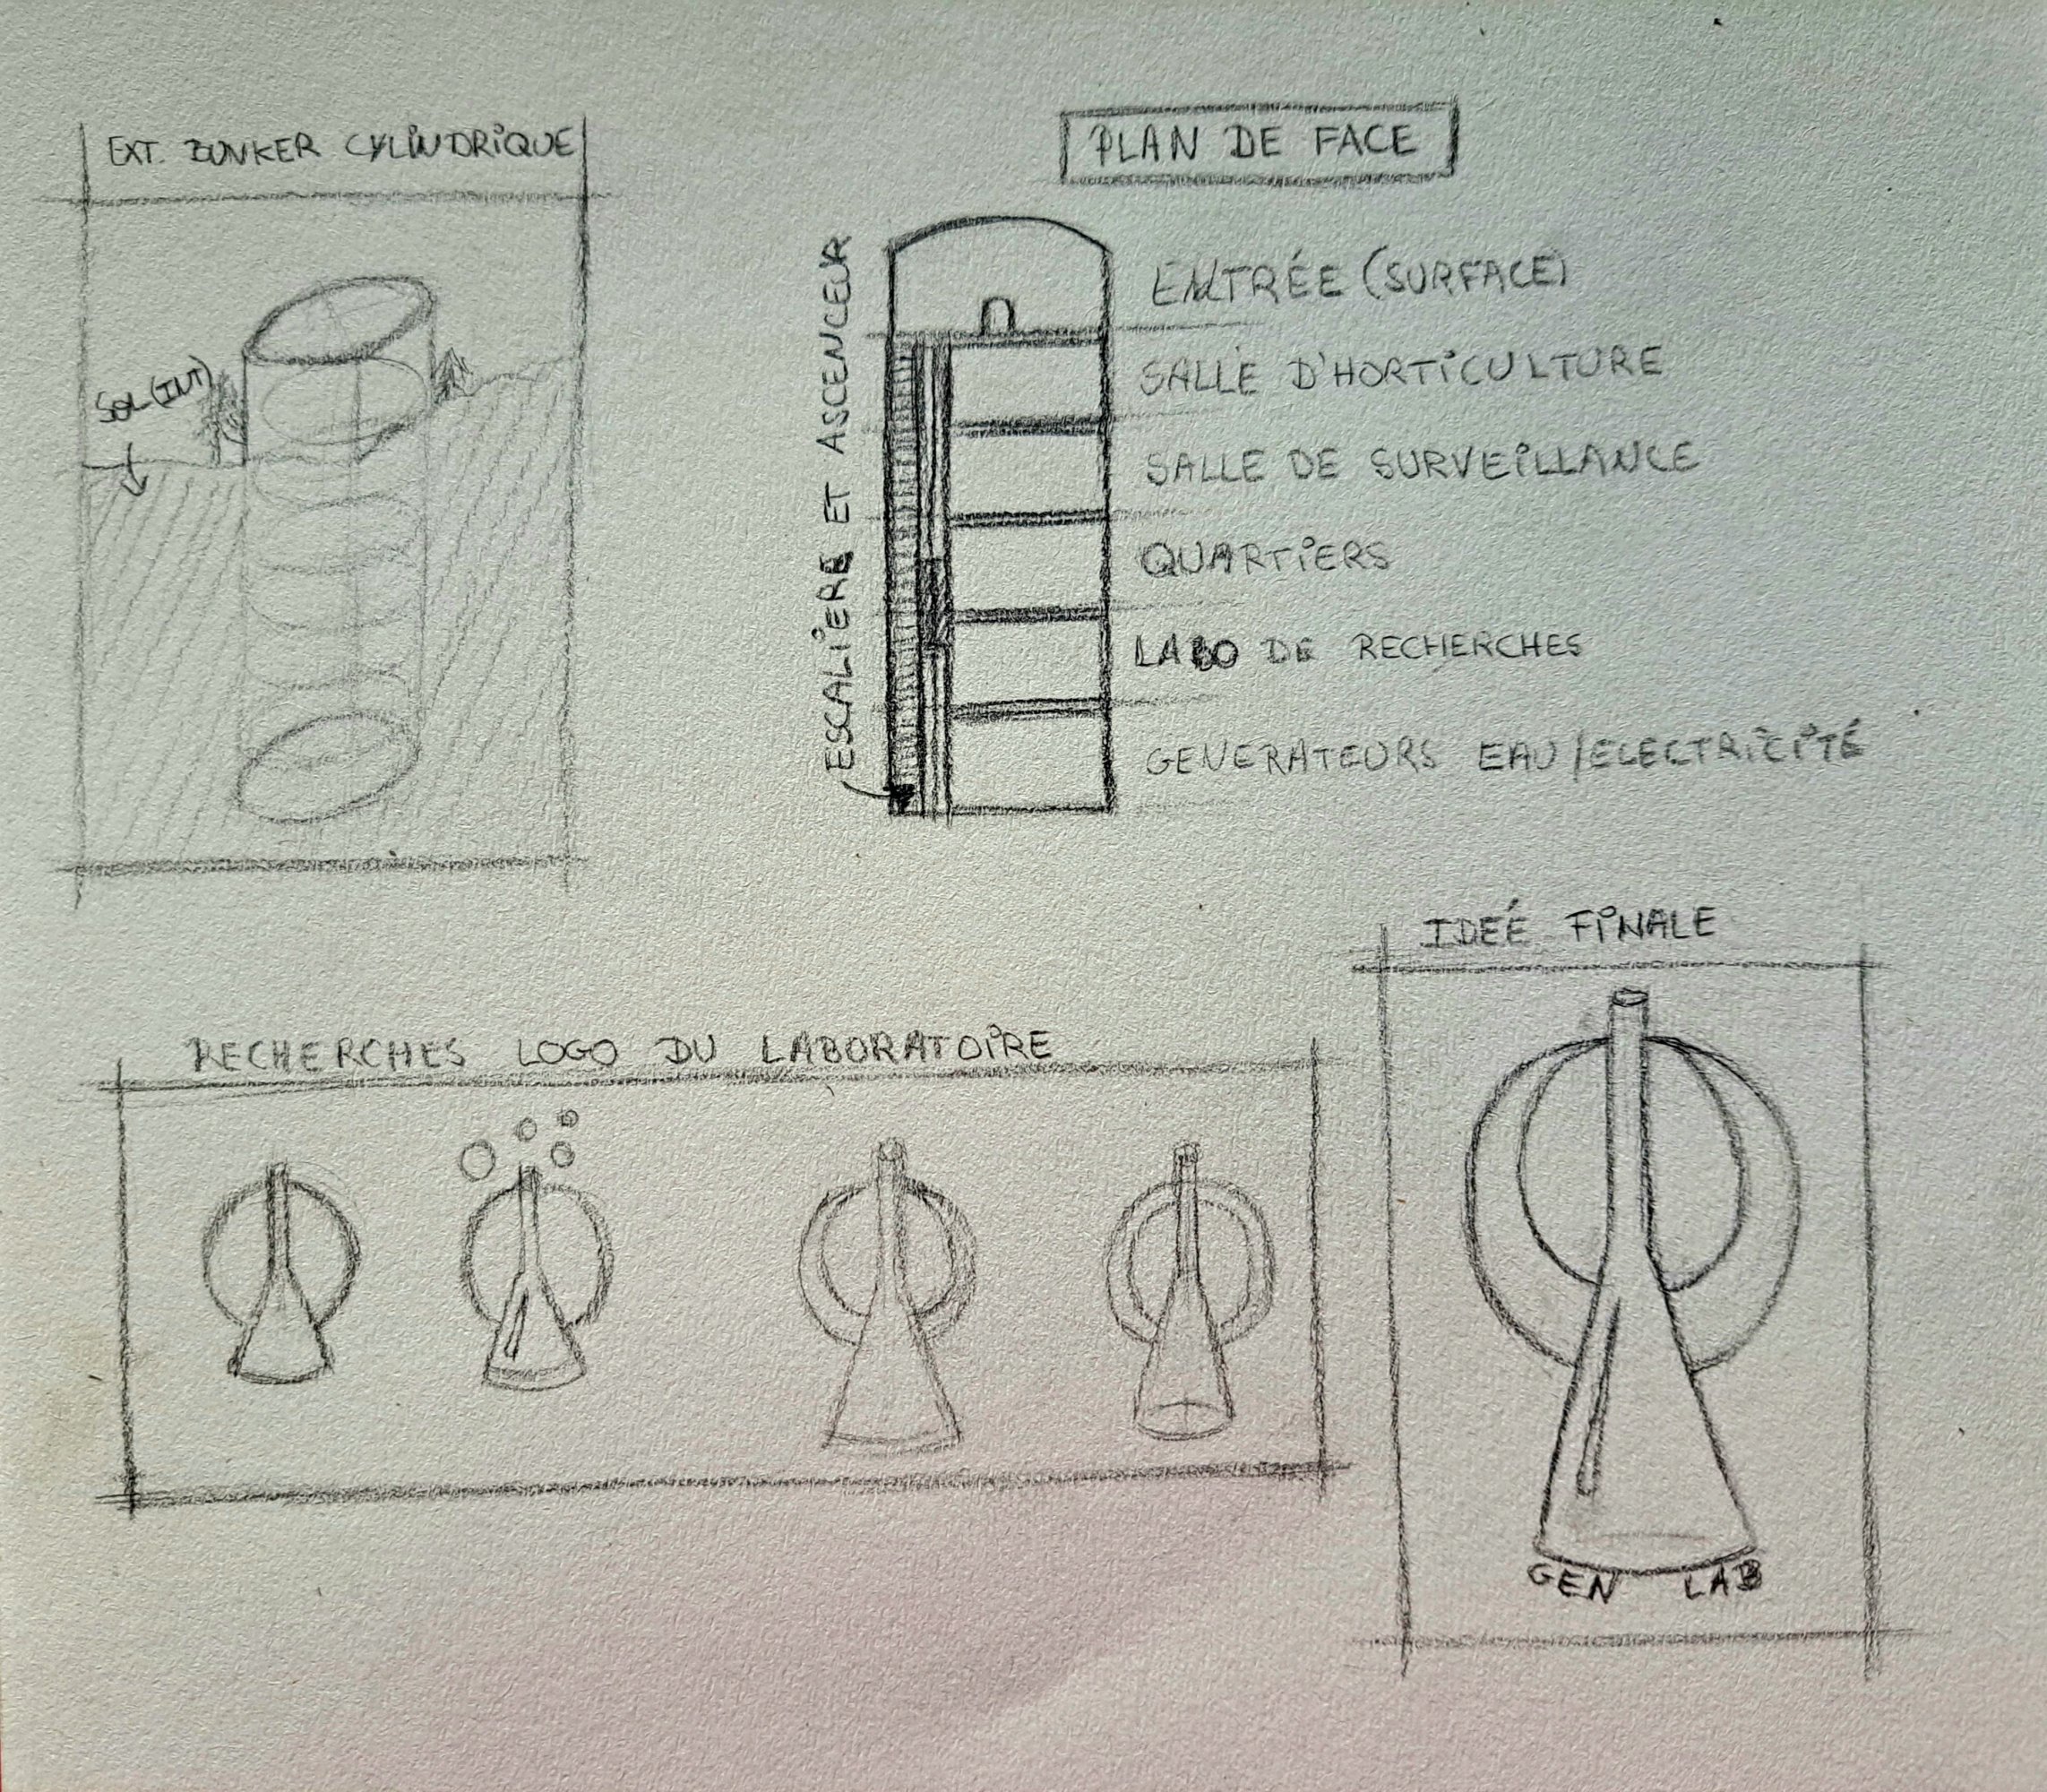 EXT. BUNKER CYLINDRIQUE
SOL (INT)
PLAN DE FACE
ESCALIERE ET ASCENCEUR
ENTRÉE (SURFACE)
SALLE D'HORTICULTURE
SALLE DE SURVEILLANCE
QUARTIERS
LABO DE RECHERCHES
GENERATEURS EAU/ELECTRICITÉ
RECHERCHES LOGO DU LABORATOIRE
IDEÉ FINALE
GEN LAB